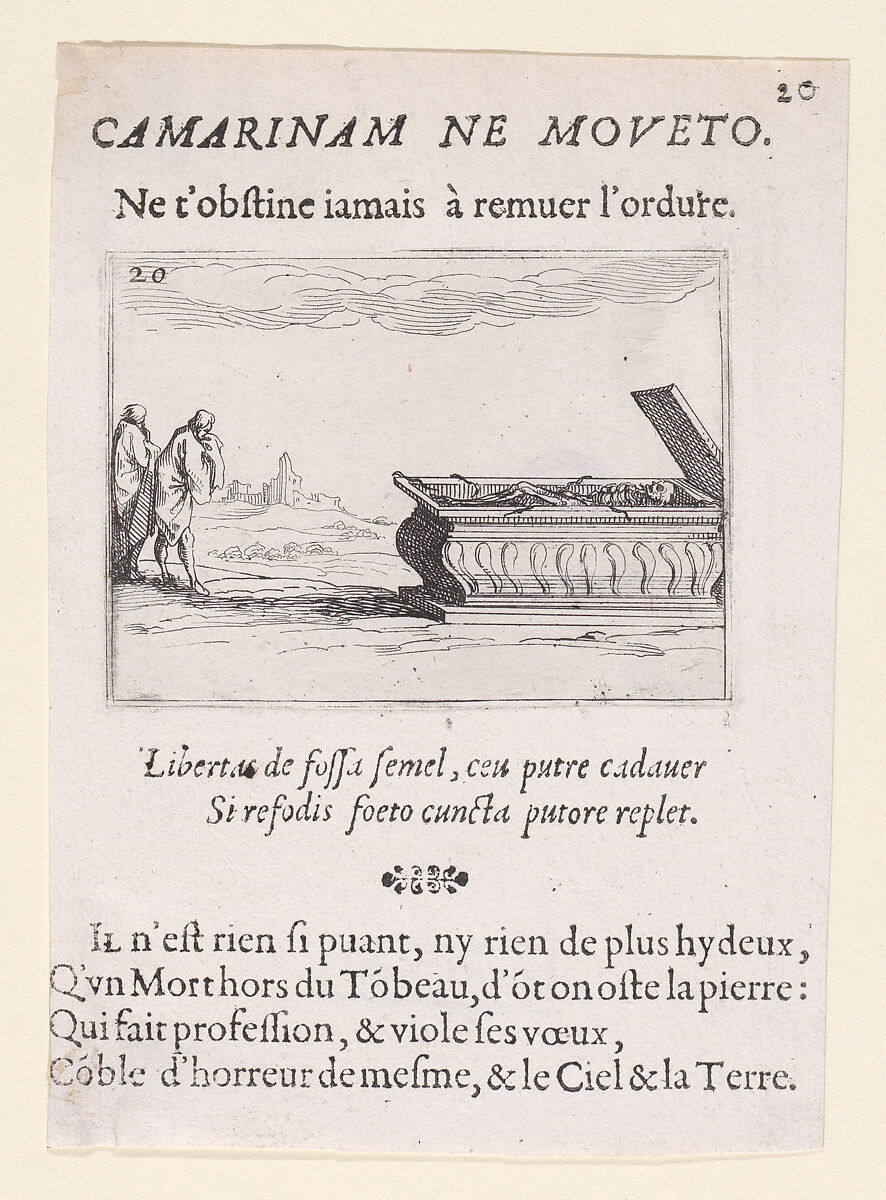 20
CAMARINAM NE MOVETO.
Ne t'obſtine iamais à remuer l'ordure.
20
Libertas de foſſa ſemel, ceu putre cadauer
Si refodis foeto cuncta putore replet.
IL n'eſt rien ſi puant, ny rien de plus hydeux,
Q'vn Mort hors du Tõbeau, d'õt on oſte la pierre :
Qui fait profeſſion, & viole ſes vœux,
Cõble d'horreur de meſme, & le Ciel & la Terre.